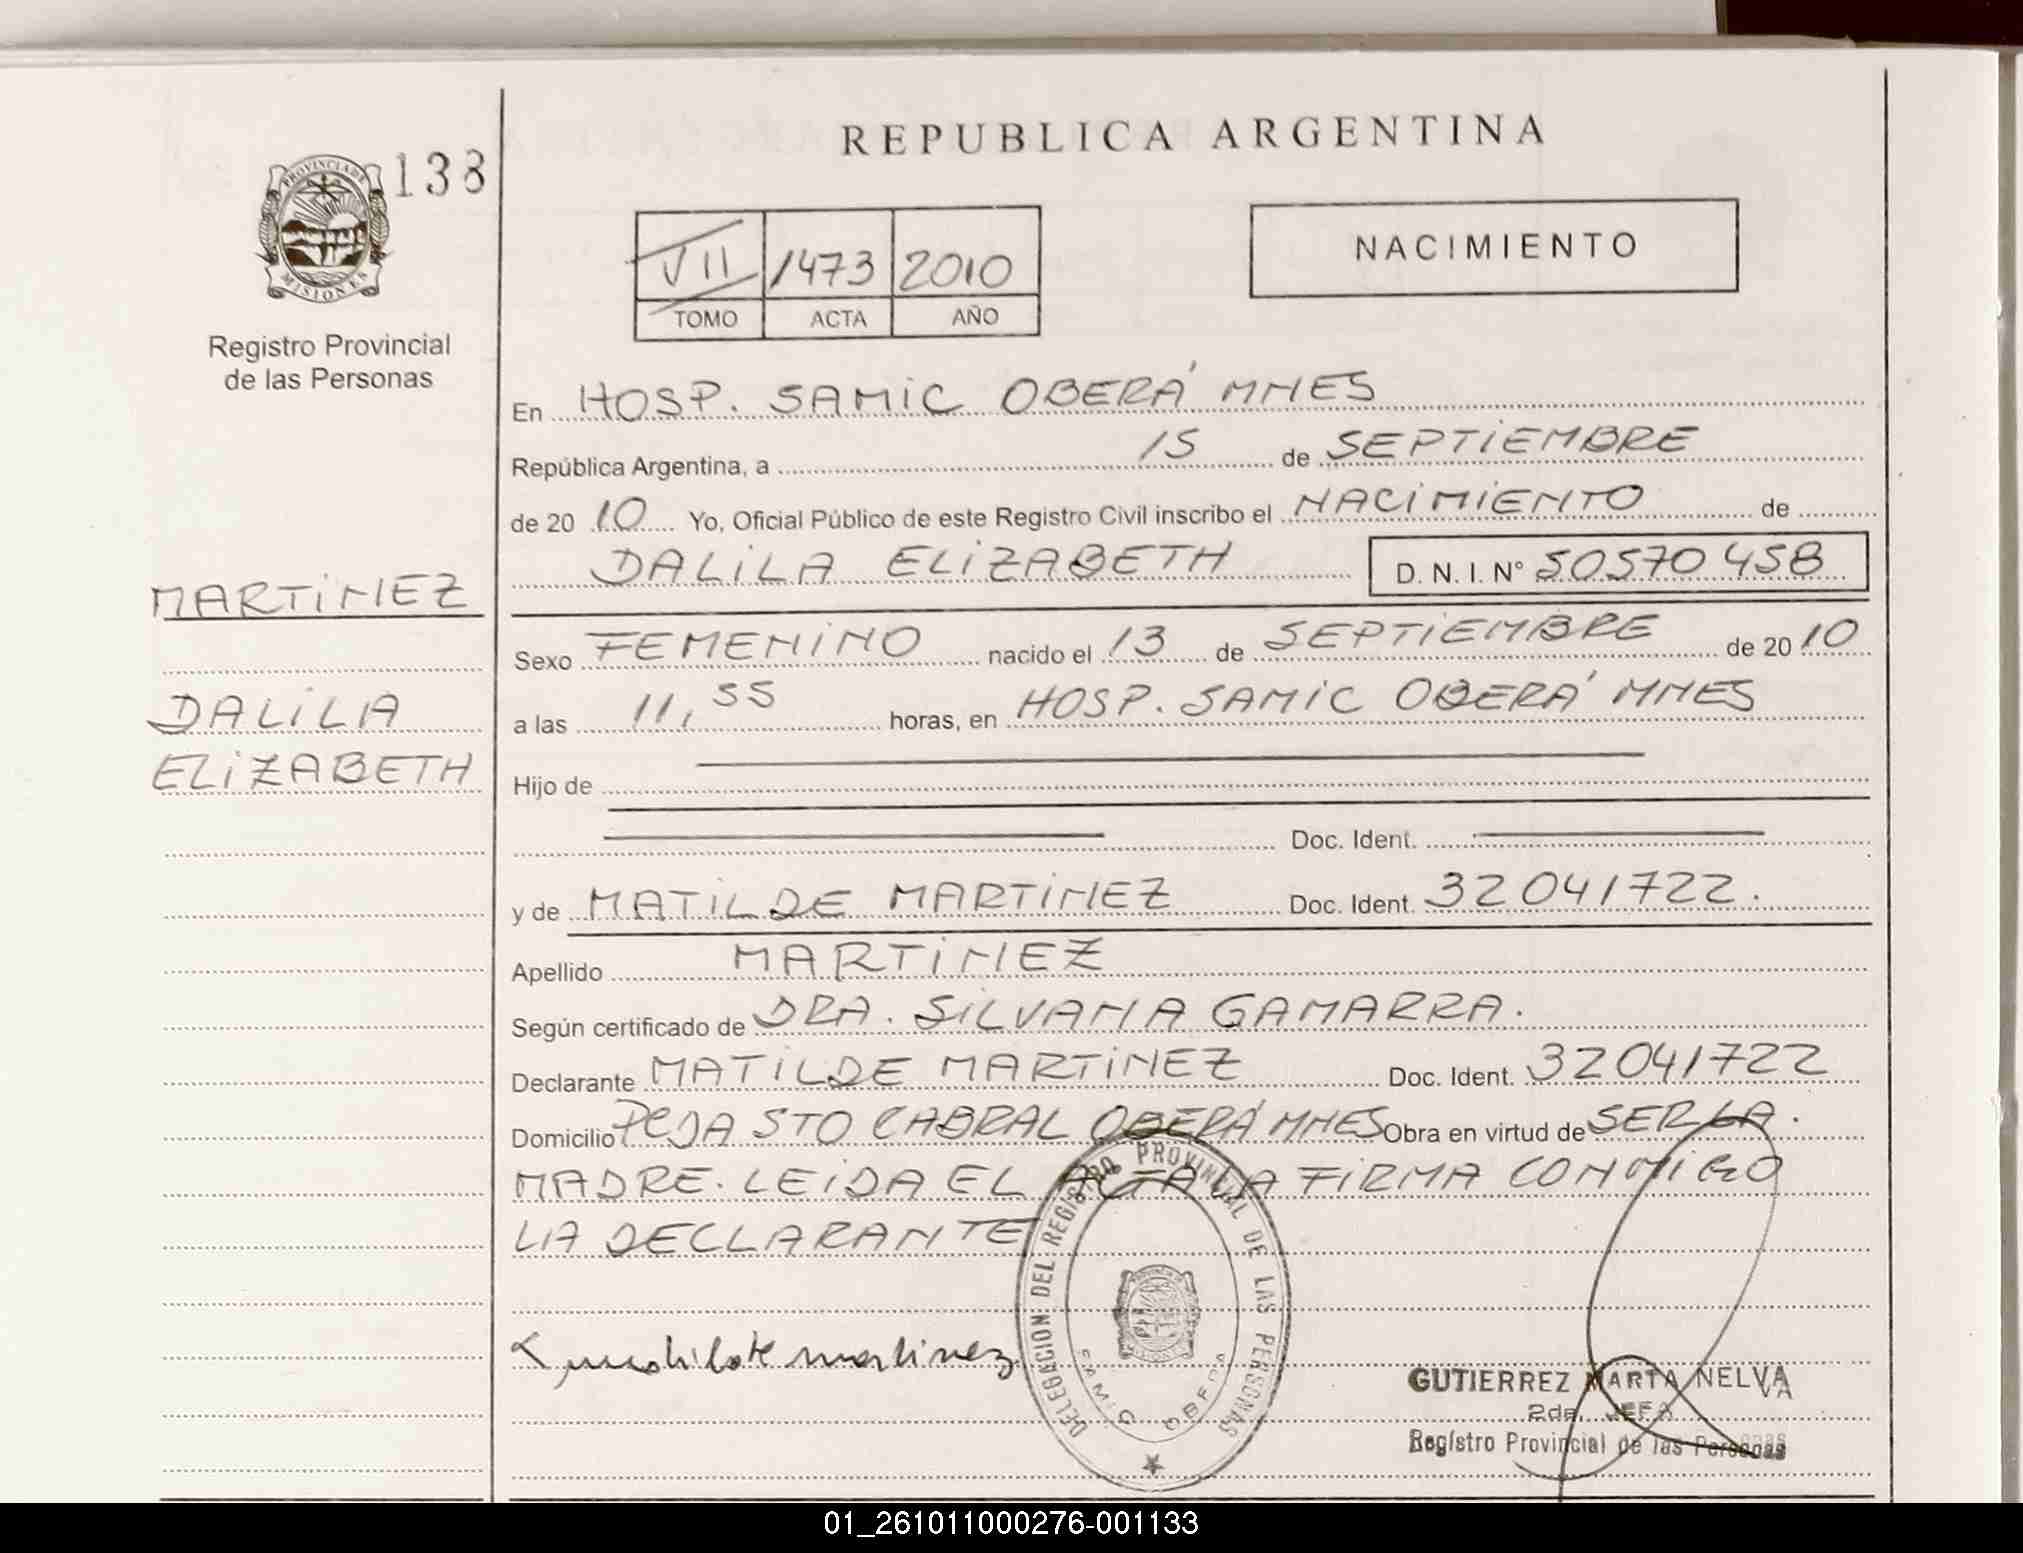 REPUBLICA ARGENTINA
138
PROVINCIA DE MISIONES
Registro Provincial
de las Personas
VII 1473 2010
TOMO ACTA AÑO
NACIMIENTO
En HOSP. SAMIC OBERÁ MNES
República Argentina, a 15 de SEPTIEMBRE
de 20 10 Yo, Oficial Público de este Registro Civil inscribo el NACIMIENTO de
DALILA ELIZABETH D.N.I. N° 50570458
MARTINEZ
DALILA
ELIZABETH
Sexo FEMENINO nacido el 13 de SEPTIEMBRE de 20 10
a las 11,55 horas, en HOSP. SAMIC OBERÁ MNES
Hijo de
Doc. Ident.
y de MATILDE MARTINEZ Doc. Ident. 32041722.
Apellido MARTINEZ
Según certificado de DRA. SILVANA GAMARRA.
Declarante MATILDE MARTINEZ Doc. Ident. 32041722
Domicilio PCJA STO CABRAL OBERÁ MNES Obra en virtud de SER LA
MADRE. LEIDA EL ACTA LA FIRMA CONMIGO
LA DECLARANTE
martinez
DELEGACION DEL REGISTRO PROVINCIAL DE LAS PERSONAS
SAMIC OBERA
GUTIERREZ MARTA NELVA
2da. JEFA
Registro Provincial de las Personas
01_261011000276-001133